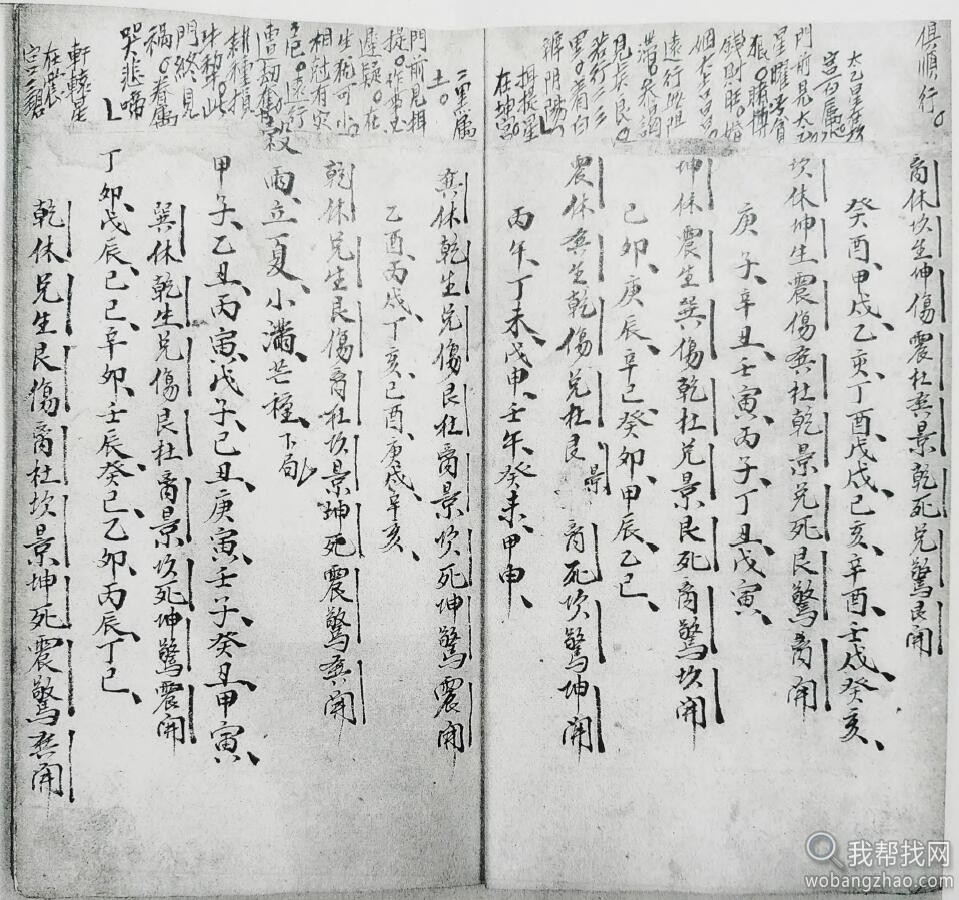 俱順行。
太乙星在
宮一白屬水
門前見太乙
星曜号貪
狼。賭博
錢財旺。婚
姻大吉昌
遠行無阻
滞。參謁
見賢良。
若行三三
里。着白
辨陰陽
攝提星
在坤宮。
二黑屬
土。
門前見攝
提。作事主
遲疑。在
生猶可
相尅有灾
危。遠行
遭劫奪
耕種損
牛犁。此
門終見
禍。眷屬
哭悲啼
軒轅星
在震
宮三碧
离休坎生坤傷震杜巽景乾死兑驚艮開
癸酉、甲戌、乙亥、丁酉、戊戌、己亥、辛酉、壬戌、癸亥、
坎休坤生震傷巽杜乾景兑死艮驚离開
庚子、辛丑、壬寅、丙子、丁丑、戊寅、
坤休震生巽傷乾杜兑景艮死离驚坎開
己卯、庚辰、辛巳、癸卯、甲辰、乙巳、
震休巽生乾傷兑杜艮景离死坎驚坤開
丙午、丁未、戊申、壬午、癸未、甲申、
巽休乾生兑傷艮杜离景坎死坤驚震開
乙酉、丙戌、丁亥、己酉、庚戌、辛亥、
乾休兑生艮傷离杜坎景坤死震驚巽開
穀雨、立夏、小滿、芒種、下局
甲子、乙丑、丙寅、戊子、己丑、庚寅、壬子、癸丑、甲寅、
巽休乾生兑傷艮杜离景坎死坤驚震開
丁卯、戊辰、己巳、辛卯、壬辰、癸巳、乙卯、丙辰、丁巳、
乾休兑生艮傷离杜坎景坤死震驚巽開
我帮找网
wobangzhao.com